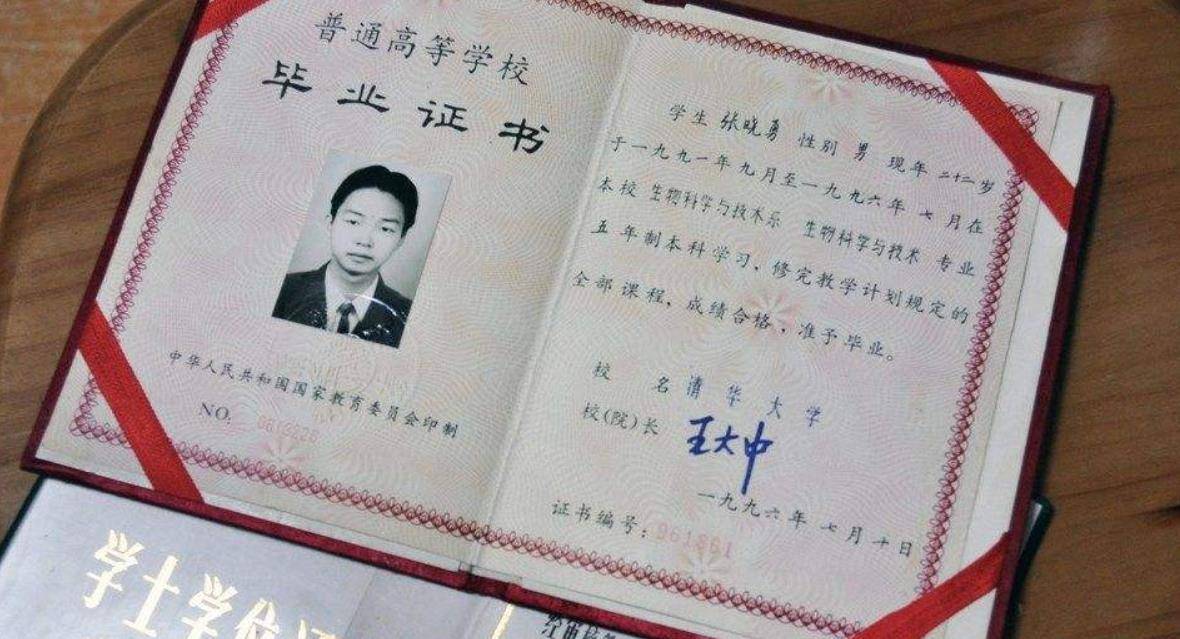 普通高等学校
毕业证书
中华人民共和国国家教育委员会印制
NO:
学生 张晓勇 性别 男 现年 二十二岁
于一九九一年九月至一九九六年 七月在
本校 生物科学与技术系 生物科学与技术 专业
五年制本科学习，修完教学计划规定的
全部课程，成绩合格，准予毕业。
校 名 清华大学
校(院)长 王大中
一九九六年 七月十日
证书编号：961861
学士学位